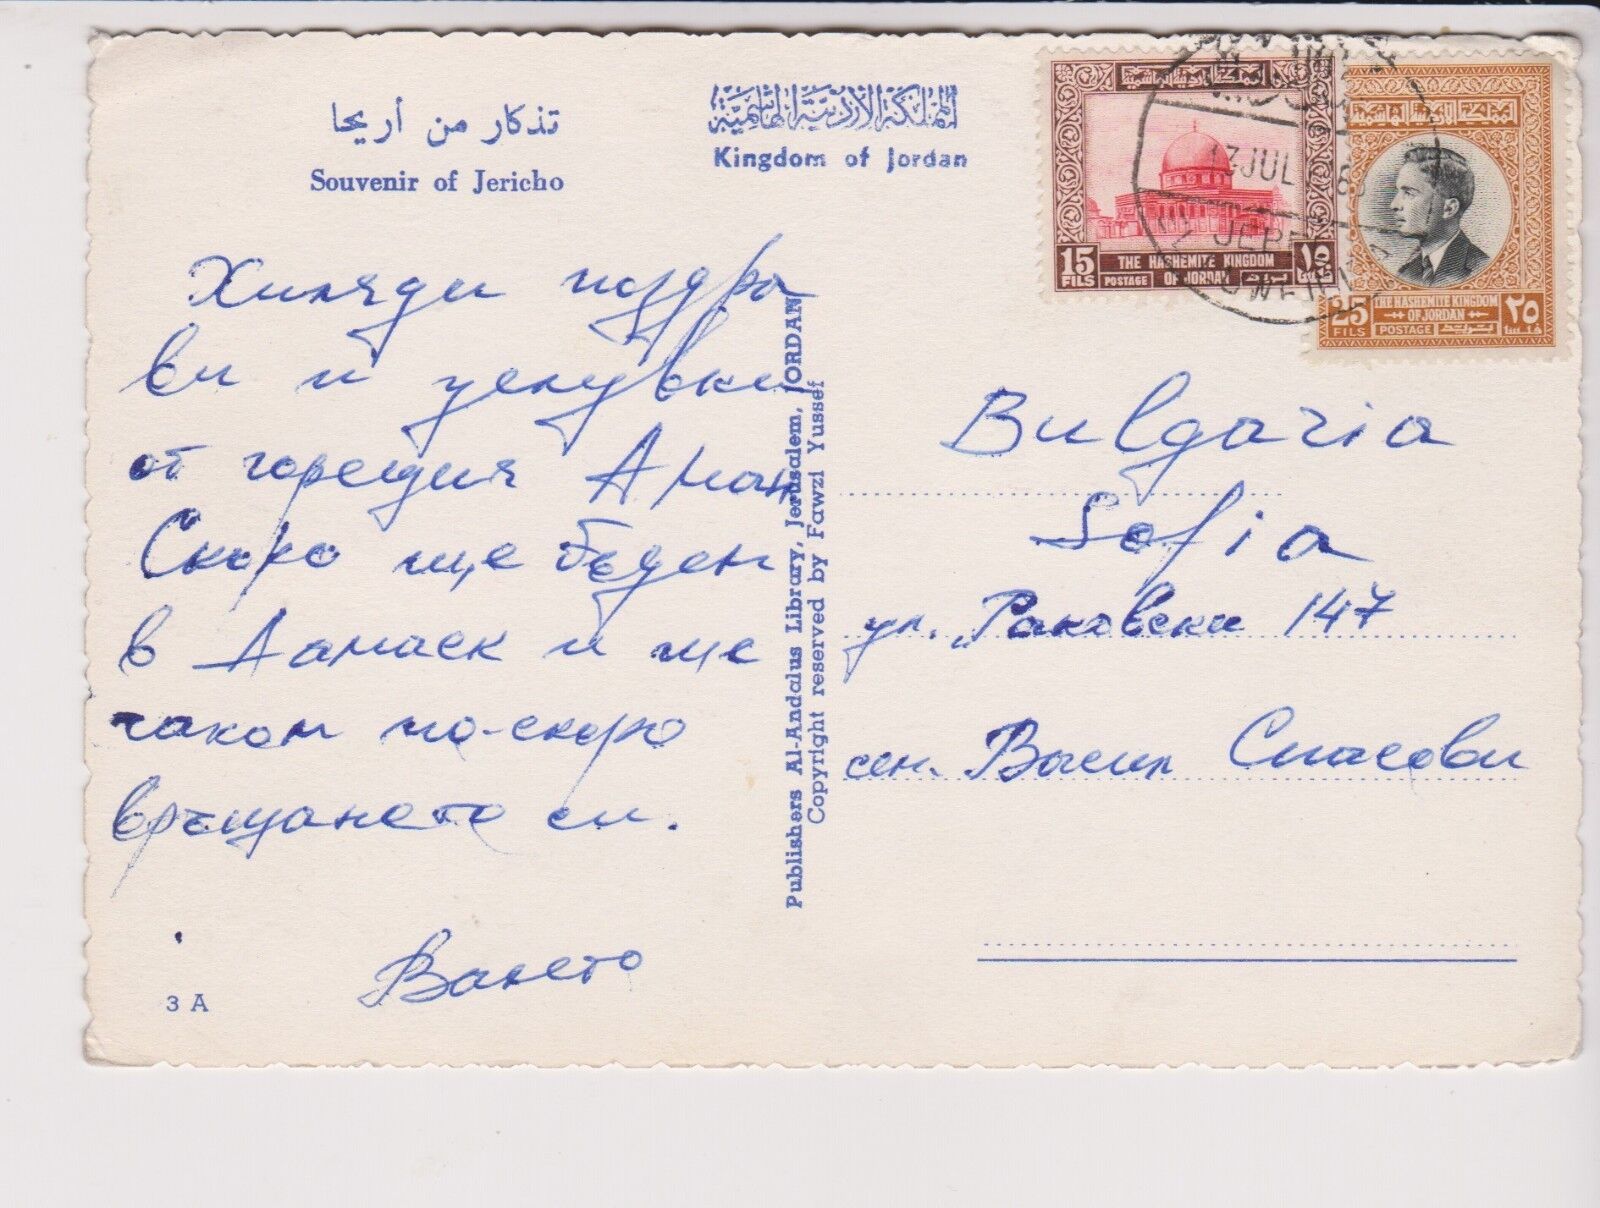 تذكار من أريحا
Souvenir of Jericho
المملكة الأردنية الهاشمية
Kingdom of Jordan
Хиляди поздра
ви и целувки
от горещия Аман
Скоро ще бъдем
в Дамаск и ще
чакам по-скоро
връщането си.
Ването
3 A
Publishers Al-Andalus Library, Jerusalem, JORDAN
Copyright reserved by Fawzi Yussef
المملكة الأردنية الهاشمية
15
FILS
THE HASHEMITE KINGDOM
OF JORDAN
POSTAGE
بريد
١٥
فلسا
المملكة الأردنية الهاشمية
25
FILS
THE HASHEMITE KINGDOM
OF JORDAN
POSTAGE
بريد
٢٥
فلسا
JUL
Bulgaria
Sofia
ул. „Раковски 147
сем. Васил Спасови